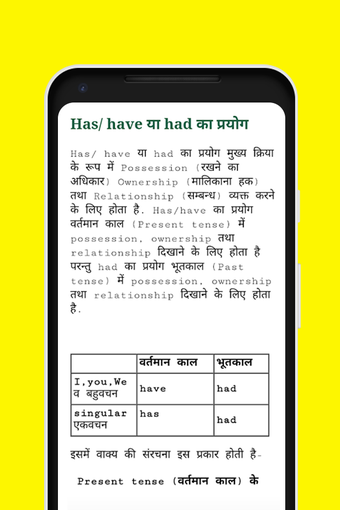 Has/ have या had का प्रयोग
Has/ have या had का प्रयोग मुख्य क्रिया
के रूप में Possession (रखने का
अधिकार) Ownership (मालिकाना हक)
तथा Relationship (सम्बन्ध) व्यक्त करने
के लिए होता है. Has/have का प्रयोग
वर्तमान काल (Present tense) में
possession, ownership तथा
relationship दिखाने के लिए होता है
परन्तु had का प्रयोग भूतकाल (Past
tense) में possession, ownership
तथा relationship दिखाने के लिए होता
है.
वर्तमान काल भूतकाल
I,you,We
व बहुवचन have had
singular
एकवचन has had
इसमें वाक्य की संरचना इस प्रकार होती है-
Present tense (वर्तमान काल) के